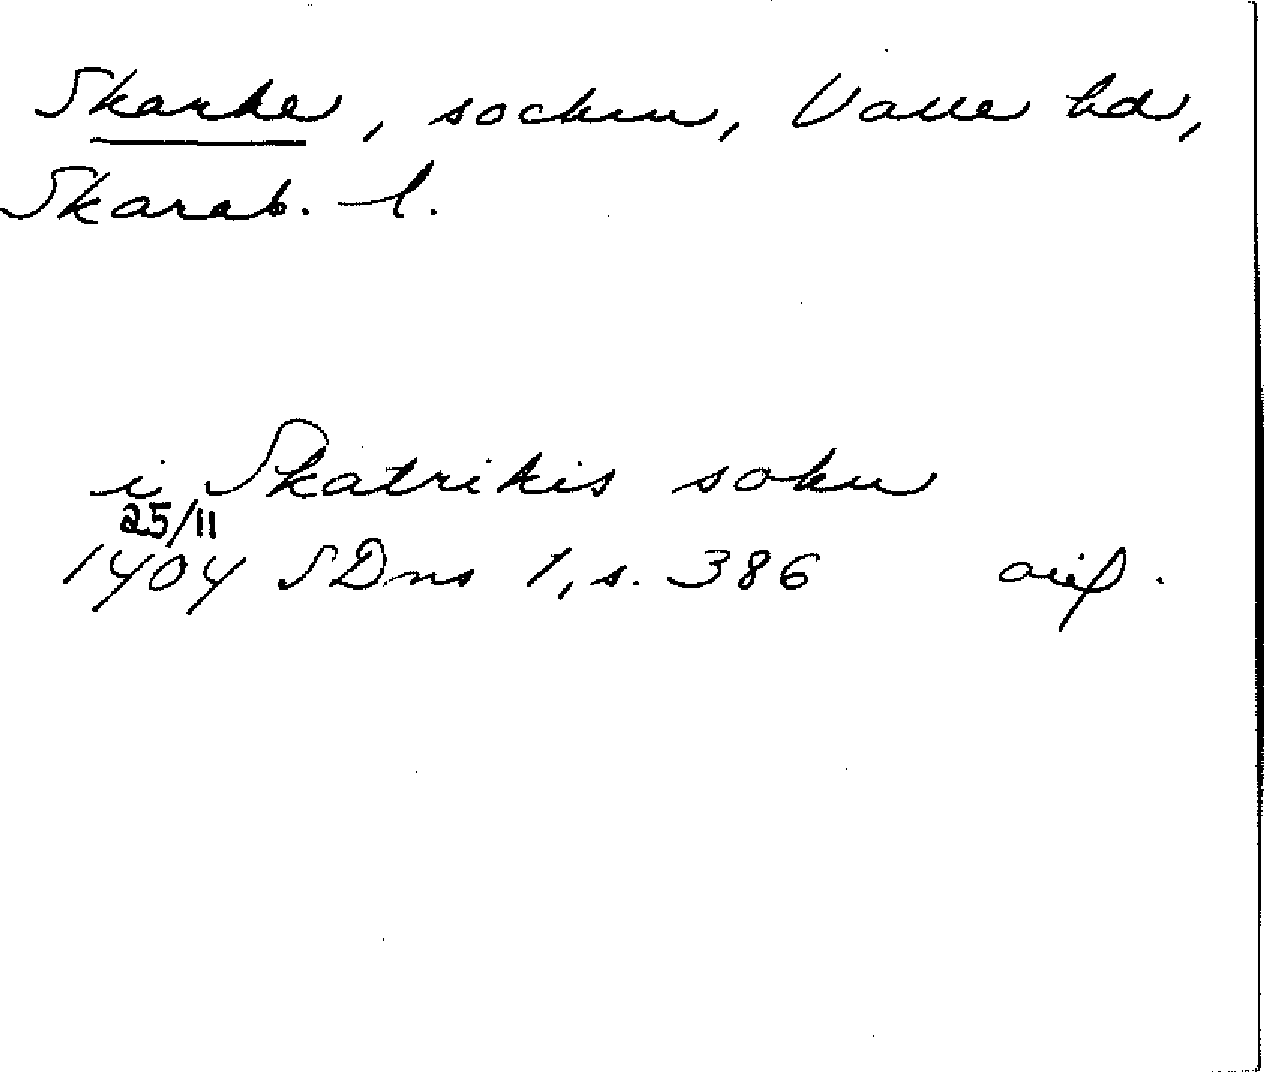 Skarke, socken, Valle hd,
Skarab. l.
i Skatrikis sokn
25/11
1404 SDns 1, s. 386 orig.